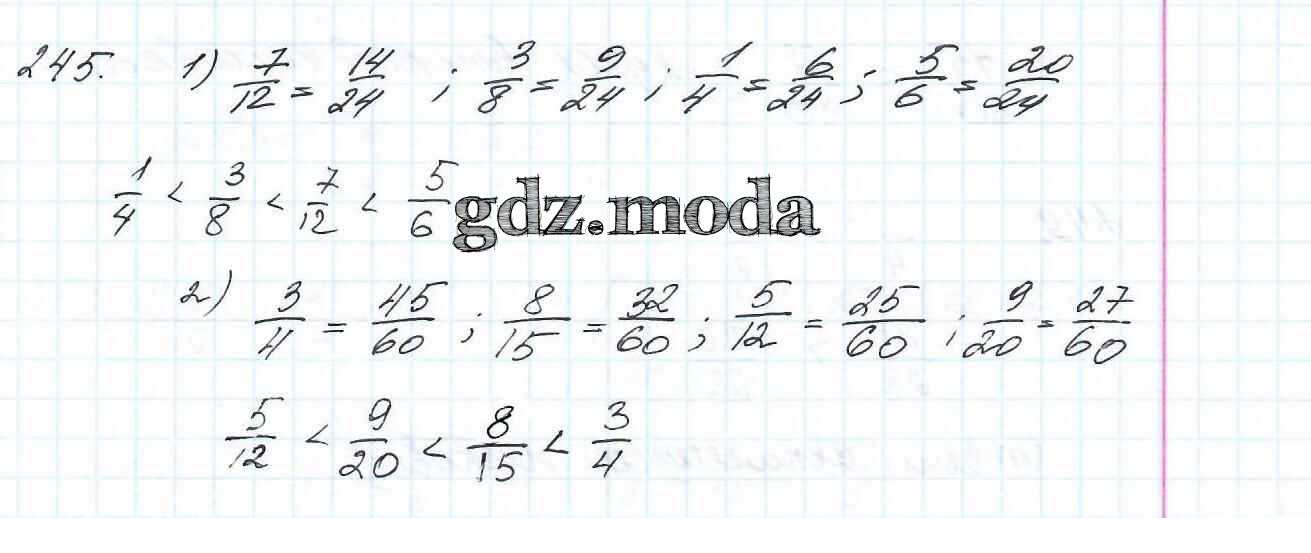 245. 1) 7/12 = 14/24 ; 3/8 = 9/24 ; 1/4 = 6/24 ; 5/6 = 20/24
1/4 < 3/8 < 7/12 < 5/6
gdz.moda
2) 3/4 = 45/60 ; 8/15 = 32/60 ; 5/12 = 25/60 ; 9/20 = 27/60
5/12 < 9/20 < 8/15 < 3/4